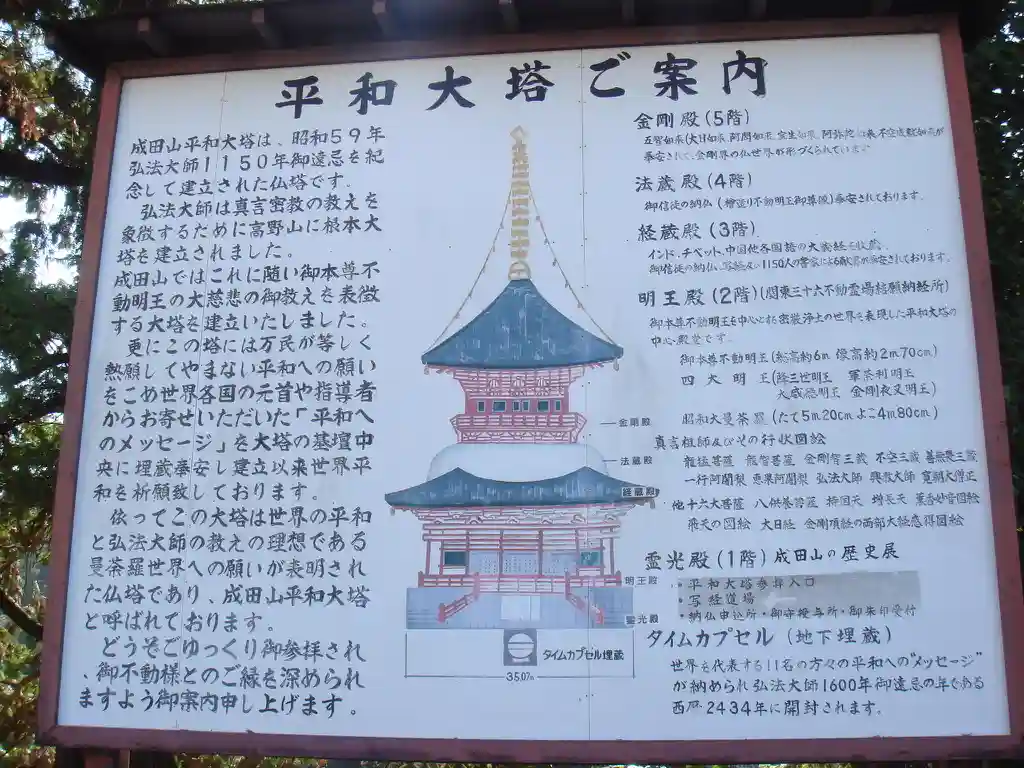 平和大塔ご案内
成田山平和大塔は、昭和59年
弘法大師1150年御遠忌を紀
念して建立された仏塔です.
弘法大師は真言密教の教えを
象徴するために高野山に根本大
塔を建立されました。
成田山ではこれに随い御本尊不
動明王の大慈悲の御教えを表徴
する大塔を建立いたしました。
更にこの塔には万民が等しく
熱願してやまない平和への願い
をこめ世界各国の元首や指導者
からお寄せいただいた「平和へ
のメッセージ」を大塔の基壇中
央に埋蔵奉安し建立以来世界平
和を祈願致しております。
依ってこの大塔は世界の平和
と弘法大師の教えの理想である
曼荼羅世界への願いが表明され
た仏塔であり、成田山平和大塔
と呼ばれております。
どうぞごゆっくり御参拝され
、御不動様とのご縁を深められ
ますよう御案内申し上げます。
金剛殿
法蔵殿
経蔵殿
明王殿
霊光殿
タイムカプセル埋蔵
35.07m
金剛殿(5階)
五智如来(大日如来.阿閦如来.宝生如来.阿弥陀如来.不空成就如来)が
奉安されて、金剛界の仏世界が形づくられています
法蔵殿(4階)
御信徒の納仏(檀造り不動明王御尊像)奉安されております.
経蔵殿(3階)
インド、チベット、中国他各国語の大蔵経を収蔵.
御信徒の納仏、写経及び1150人の書家による献書が奉安されております.
明王殿(2階)(関東三十六不動霊場結願納経所)
御本尊不動明王を中心とする密厳浄土の世界を表現した平和大塔の
中心殿堂です.
御本尊不動明王(総高約6m 像高約2m70cm)
四大明王(降三世明王 軍荼利明王
大威徳明王 金剛夜叉明王)
昭和大曼荼羅(たて5m20cmよこ4m80cm)
真言祖師及びその行状図絵
龍猛菩薩 龍智菩薩 金剛智三蔵 不空三蔵 善無畏三蔵
一行阿闍梨 恵果阿闍梨 弘法大師 興教大師 寛朝大僧正
他十六大菩薩 八供養菩薩 持国天 増長天
飛天の図絵 大日経 金剛頂経の両部大経意得図絵
霊光殿(1階)成田山の歴史展
・平和大塔参拝入口
・写経道場
・納仏申込所・御守授与所・御朱印受付
タイムカプセル(地下埋蔵)
世界を代表する11名の方々の平和への"メッセージ"
が納められ弘法大師1600年御遠忌の年である
西暦2434年に開封されます。